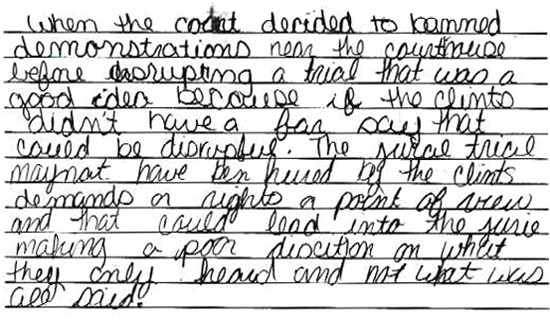 When the court decided to banned
demonstrations near the courthouse
before disrupting a trial that was a
good idea because if the clints
didn't have a fair say that
could be disrupful. The juical trical
maynot have ben hured by the clints
demands or rights a point of view
and that could lead into the jurie
making a poor discition on what
they only heard and not what was
all said.